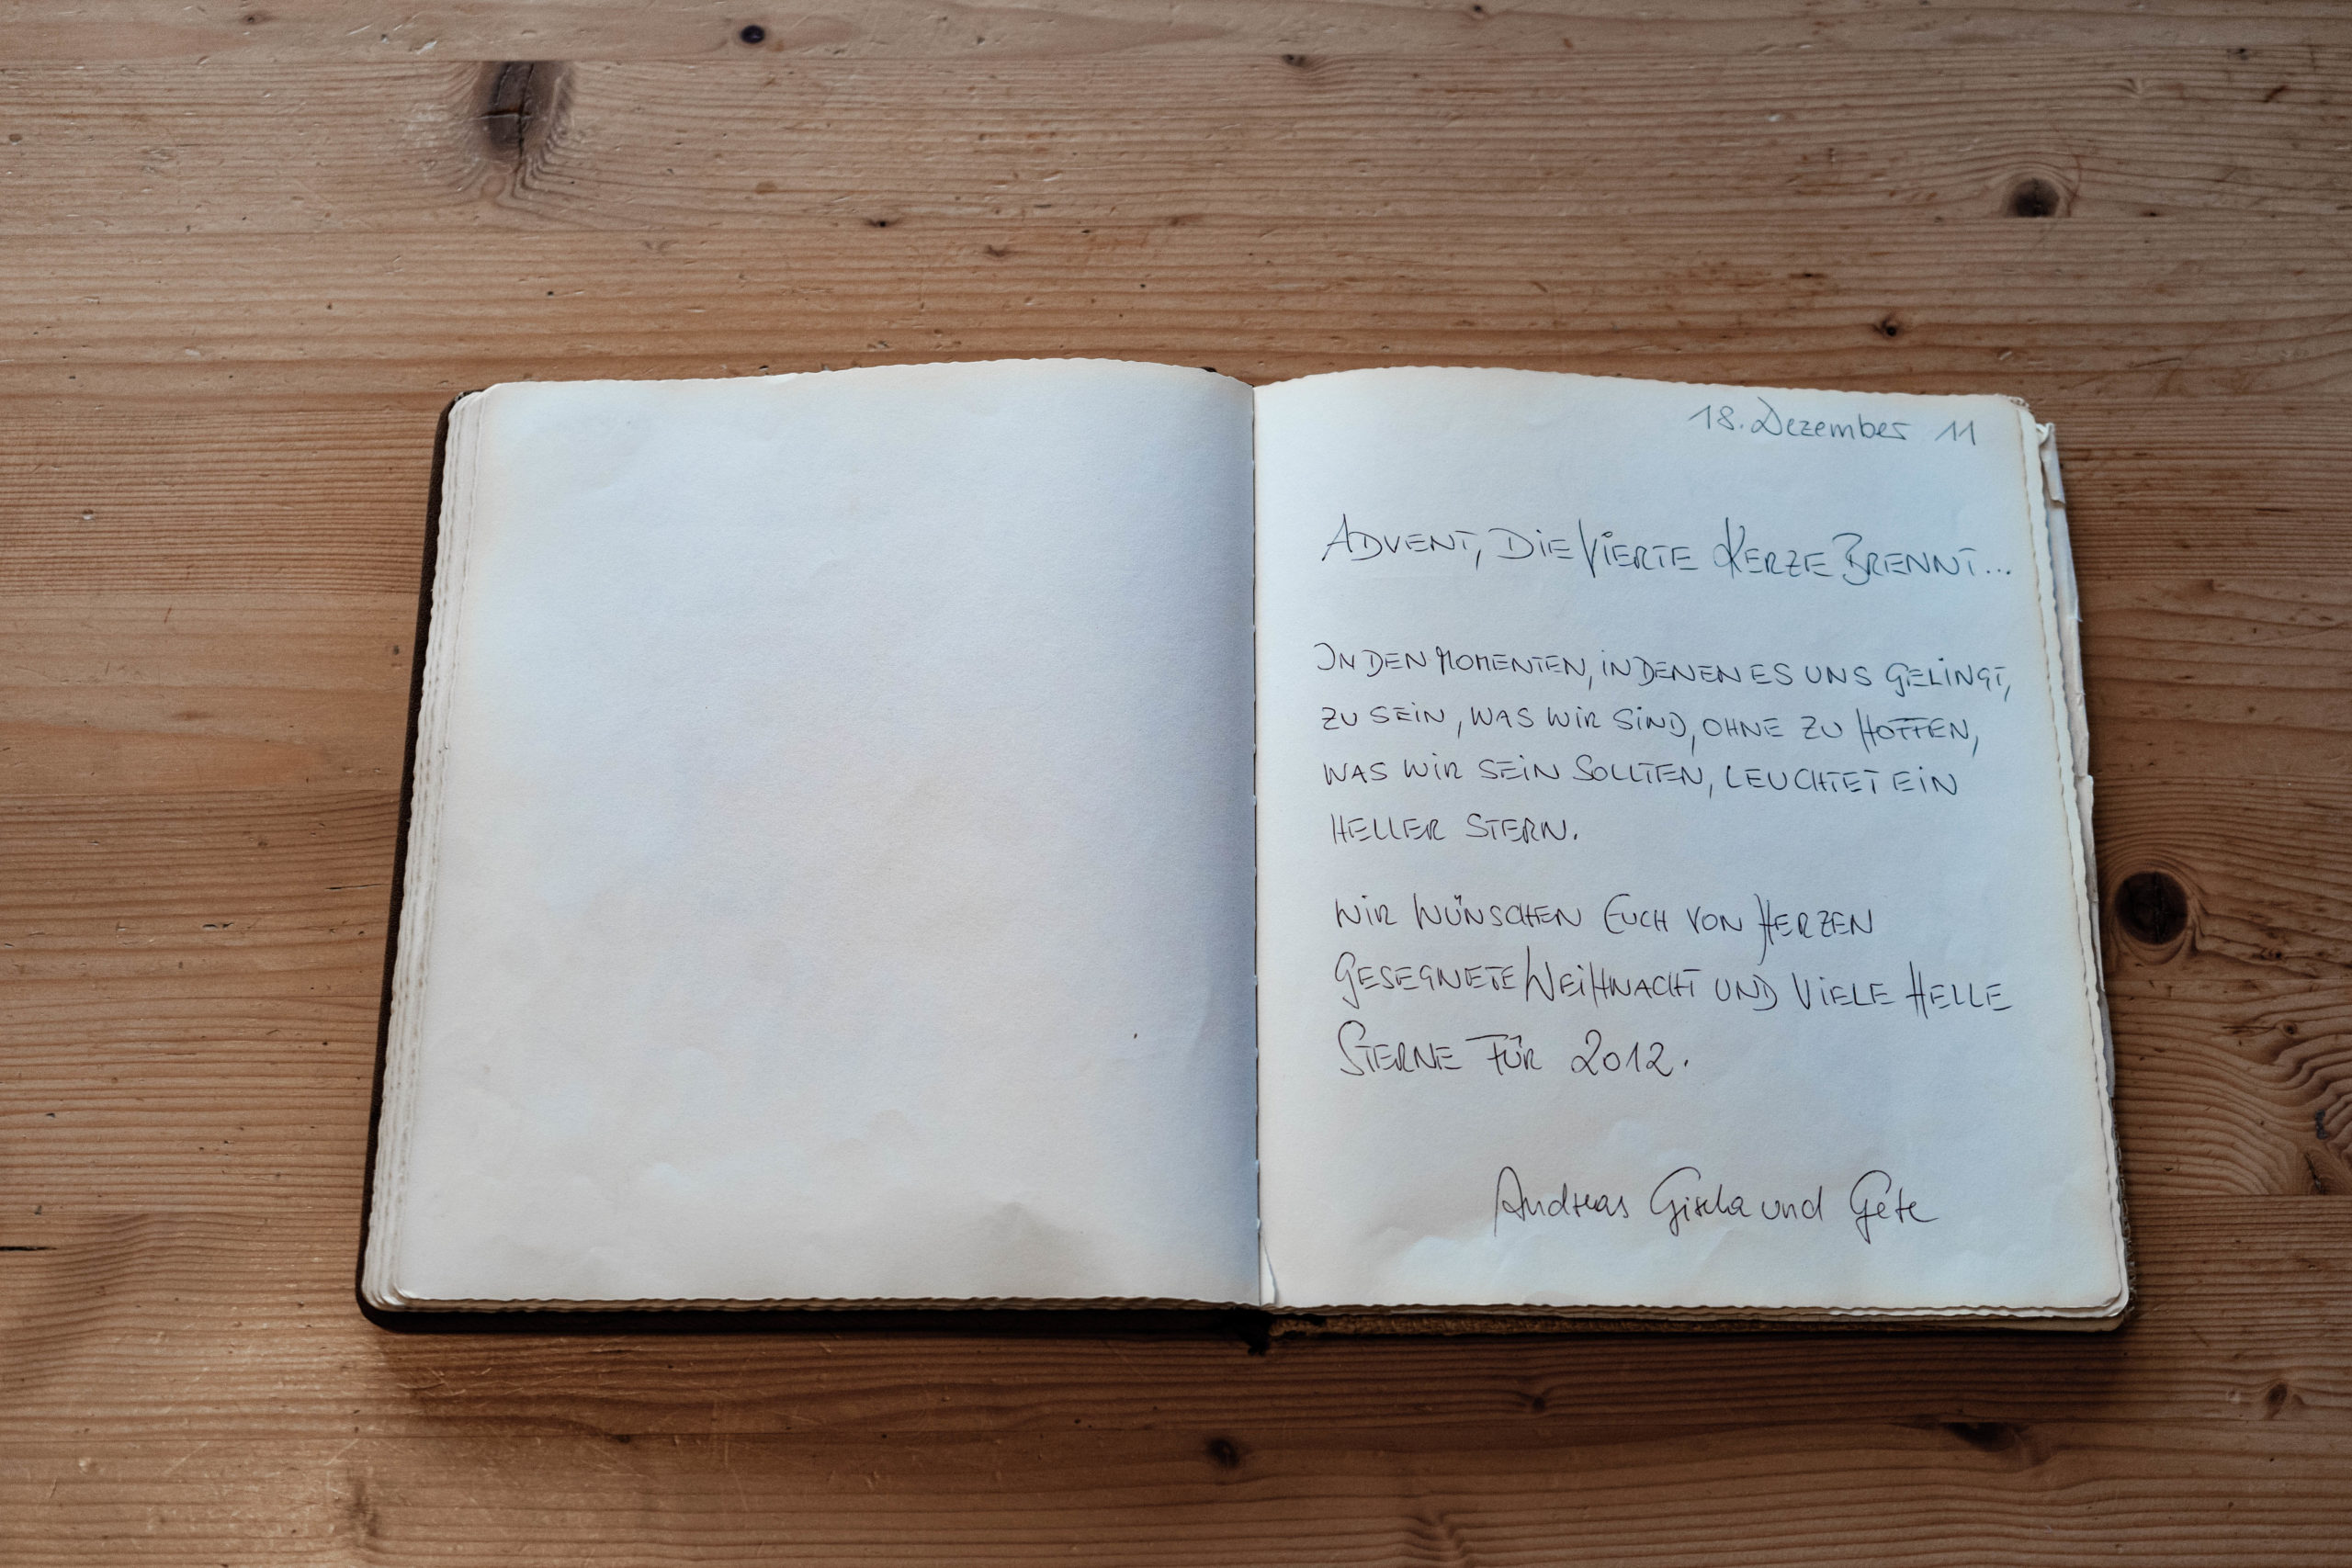 18. Dezember 11
ADVENT, DIE VIERTE KERZE BRENNT...
IN DEN MOMENTEN, IN DENEN ES UNS GELINGT,
ZU SEIN, WAS WIR SIND, OHNE ZU HOFFEN,
WAS WIR SEIN SOLLTEN, LEUCHTET EIN
HELLER STERN.
WIR WÜNSCHEN EUCH VON HERZEN
GESEGNETE WEIHNACHT UND VIELE HELLE
STERNE FÜR 2012.
Andreas Gisela und